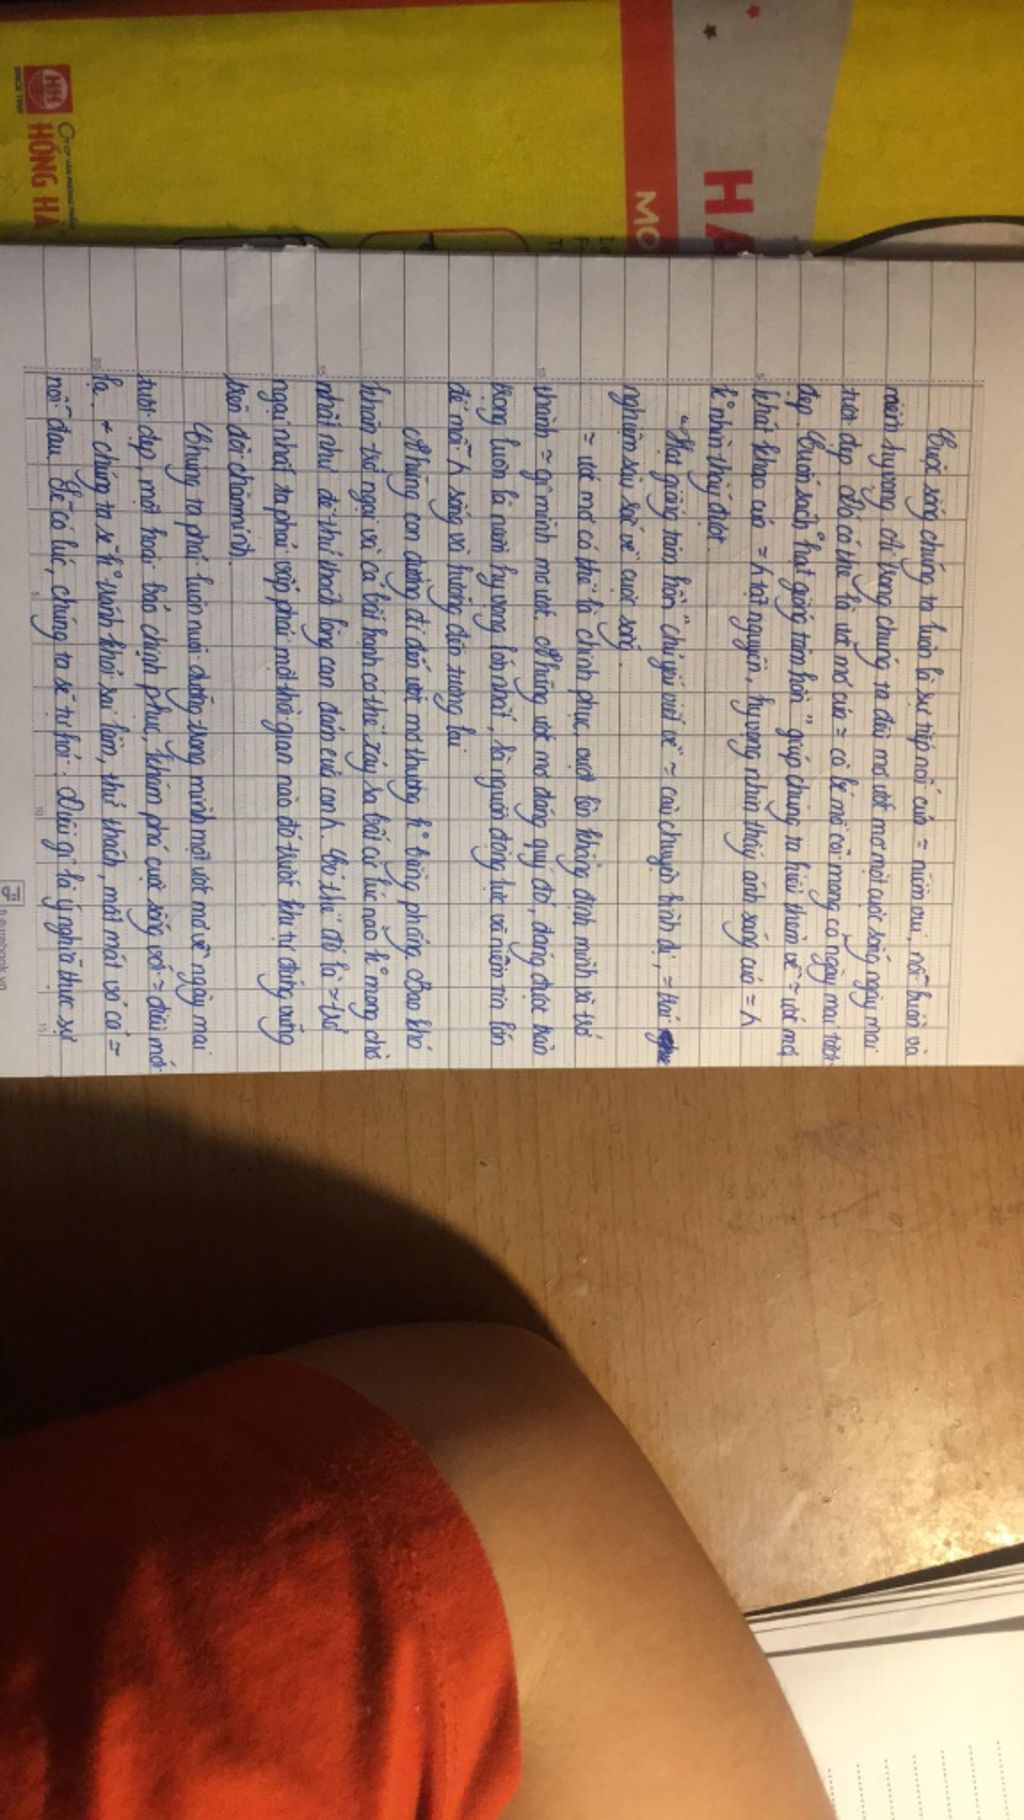 SINCE 1959
CTY CP VĂN PHÒNG PHẨM
HỒNG HÀ
HA
MO
Cuộc sống chúng ta luôn là sự tiếp nối của = niềm vui, nỗi buồn và
niềm hy vọng. Ai trong chúng ta đều mơ ước mơ một cuộc sống ngày mai
tươi đẹp. Đó có thể là ước mơ của = cô bé mồ côi mong có ngày mai tươi
đẹp. Cuốn sách "hạt giống tâm hồn" giúp chúng ta hiểu thêm về = ước mơ,
khát khao của = ʎ tật nguyền, hy vọng nhìn thấy ánh sáng của = ʎ
k° nhìn thấy được.
"Hạt giống tâm hồn" chủ yếu viết về = câu chuyện bình dị, = trải
nghiệm sâu sắc về cuộc sống.
= ước mơ có thể là chinh phục, vượt lên khẳng định mình và trở
thành = gì mình mơ ước. Những ước mơ đáng quý đó, đang được trân
trọng luôn là niềm hy vọng lớn nhất, là nguồn động lực và niềm tin lớn
để mỗi ʎ sống và hướng đến tương lai
Những con đường đi đến ước mơ thường k° bằng phẳng. Bao khó
khăn trở ngại và cả bất hạnh có thể xảy ra bất cứ lúc nào k° mong chờ
nhất như để thử thách lòng can đảm của con ʎ. Có thể đó là = trở
ngại nhất ta phải vấp phải một thời gian nào đó trước khi tự đứng vững
trên đôi chân mình.
Chúng ta phải luôn nuôi dưỡng trong mình một ước mơ về ngày mai
tươi đẹp, một hoài bão chinh phục, khám phá cuộc sống với = điều mới
lạ. chúng ta sẽ k° tránh khỏi sai lầm, thử thách, mất mát và có =
nỗi đau. Sẽ có lúc, chúng ta sẽ tự hỏi: Điều gì là ý nghĩa thực sự
5
10
15
20
5
10
15